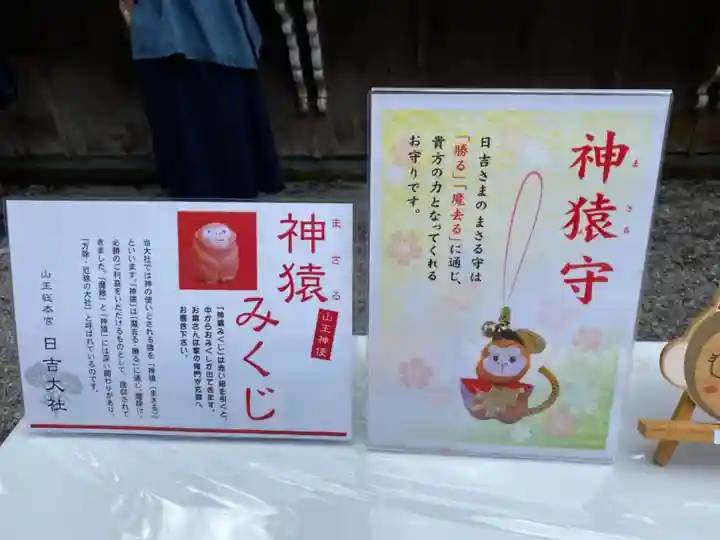 神猿みくじ
まさる
山王神使
「神猿みくじ」は赤い紐を引くと、
中からおみくじが出てきます。
お猿さんは家の鬼門や玄関へ
お置き下さい。
当大社では神の使いとされる猿を「神猿(まさる)」
といいます。「神猿」は「魔去る・勝る」に通じ、魔除け、
必勝のご利益をいただけるものとして、信仰されて
きました。「魔除」と「神猿」には深い関わりがあり、
「方除・厄除の大社」と呼ばれているのです。
山王総本宮 日吉大社
神猿守
まさる
日吉さまの まさる守は
「勝る」「魔去る」に通じ、
貴方の力となってくれる
お守りです。